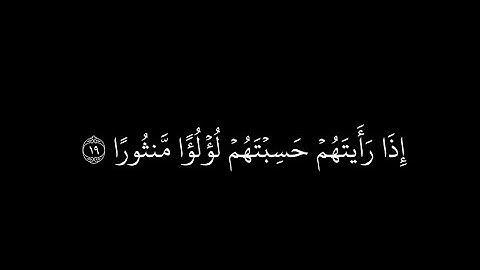 إِذَا رَأَيْتَهُمْ حَسِبْتَهُمْ لُؤْلُؤًا مَّنثُورًا ١٩